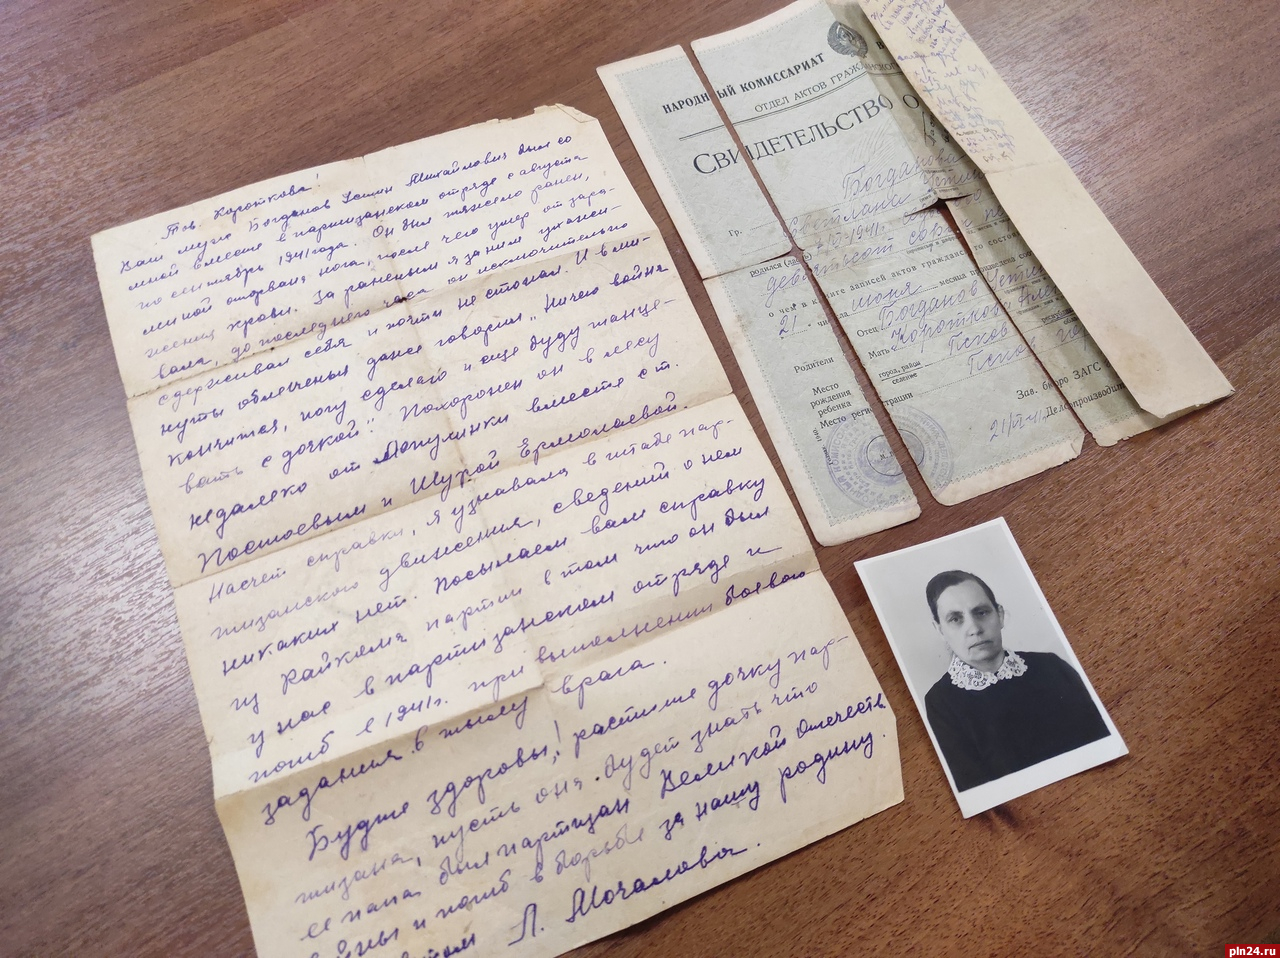 Тов. Короткова!
Ваш муж Богданов Устин Михайлович был со
мной вместе в партизанском отряде с августа
по сентябрь 1941 года. Он был тяжело ранен,
миной оторвана нога, после чего умер от зара-
жения крови. За раненым я за ним ухажи-
вала, до последнего часа он исключительно
сдерживал себя и почти не стонал. И в ми-
нуты облегченья даже говорил „Ничего война
кончится, ногу сделаю и еще буду танце-
вать с дочкой". Похоронен он в лесу
недалеко от вместе с т.
Постоевым и Шурой Ермолаевой.
Насчет справки, я узнавала в штабе пар-
тизанского движения, сведений о нем
никаких нет. Посылаем вам справку
из Райкома партии в том что он был
у нас в партизанском отряде и
погиб в 1941 г. при выполнении боевого
задания в тылу врага.
Будте здоровы, растите дочку пар-
тизана, пусть она будет знать что
ее папа был партизан Великой отечеств
войны и погиб в борьбе за нашу родину.
Л. Мочалова.
НАРОДНЫЙ КОМИССАРИАТ В
ОТДЕЛ АКТОВ ГРАЖДАНСКОГО
СВИДЕТЕЛЬСТВО О
Богданова
Гр. Светлана Устин
родился (лась) 4/VI-1941.
девятьсот сорок пе
о чем в книге записей актов гражданского состоя
21 числа июня месяца произведена соо
Родители
Отец Богданов Устин
Мать Короткова
Место рождения ребенка
город, район Псков
селение
Место регистрации Псков гор
Зав. бюро ЗАГС
21/VI-41 Делопроизводител
pln24.ru